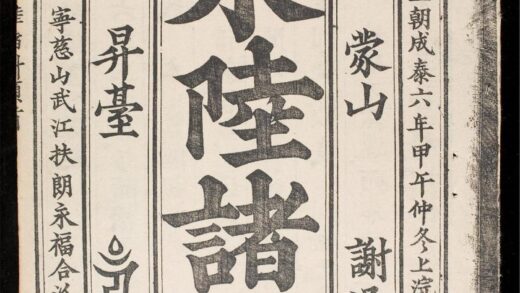 朝成泰六年甲午仲冬上浣
蒙山 謝
水陸諸
昇臺 引
寧慈山武江扶朗永福合